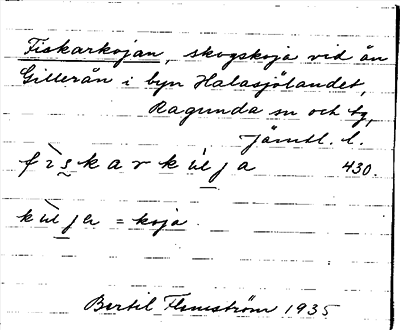 Fiskarkojan, skogskoja vid ån
Gillerån i byn Halasjölandet,
Ragunda sn och tg,
Jämtl. l.
fìskarkùlja 430.
kùlja = koja.
Bertil Flemström 1935